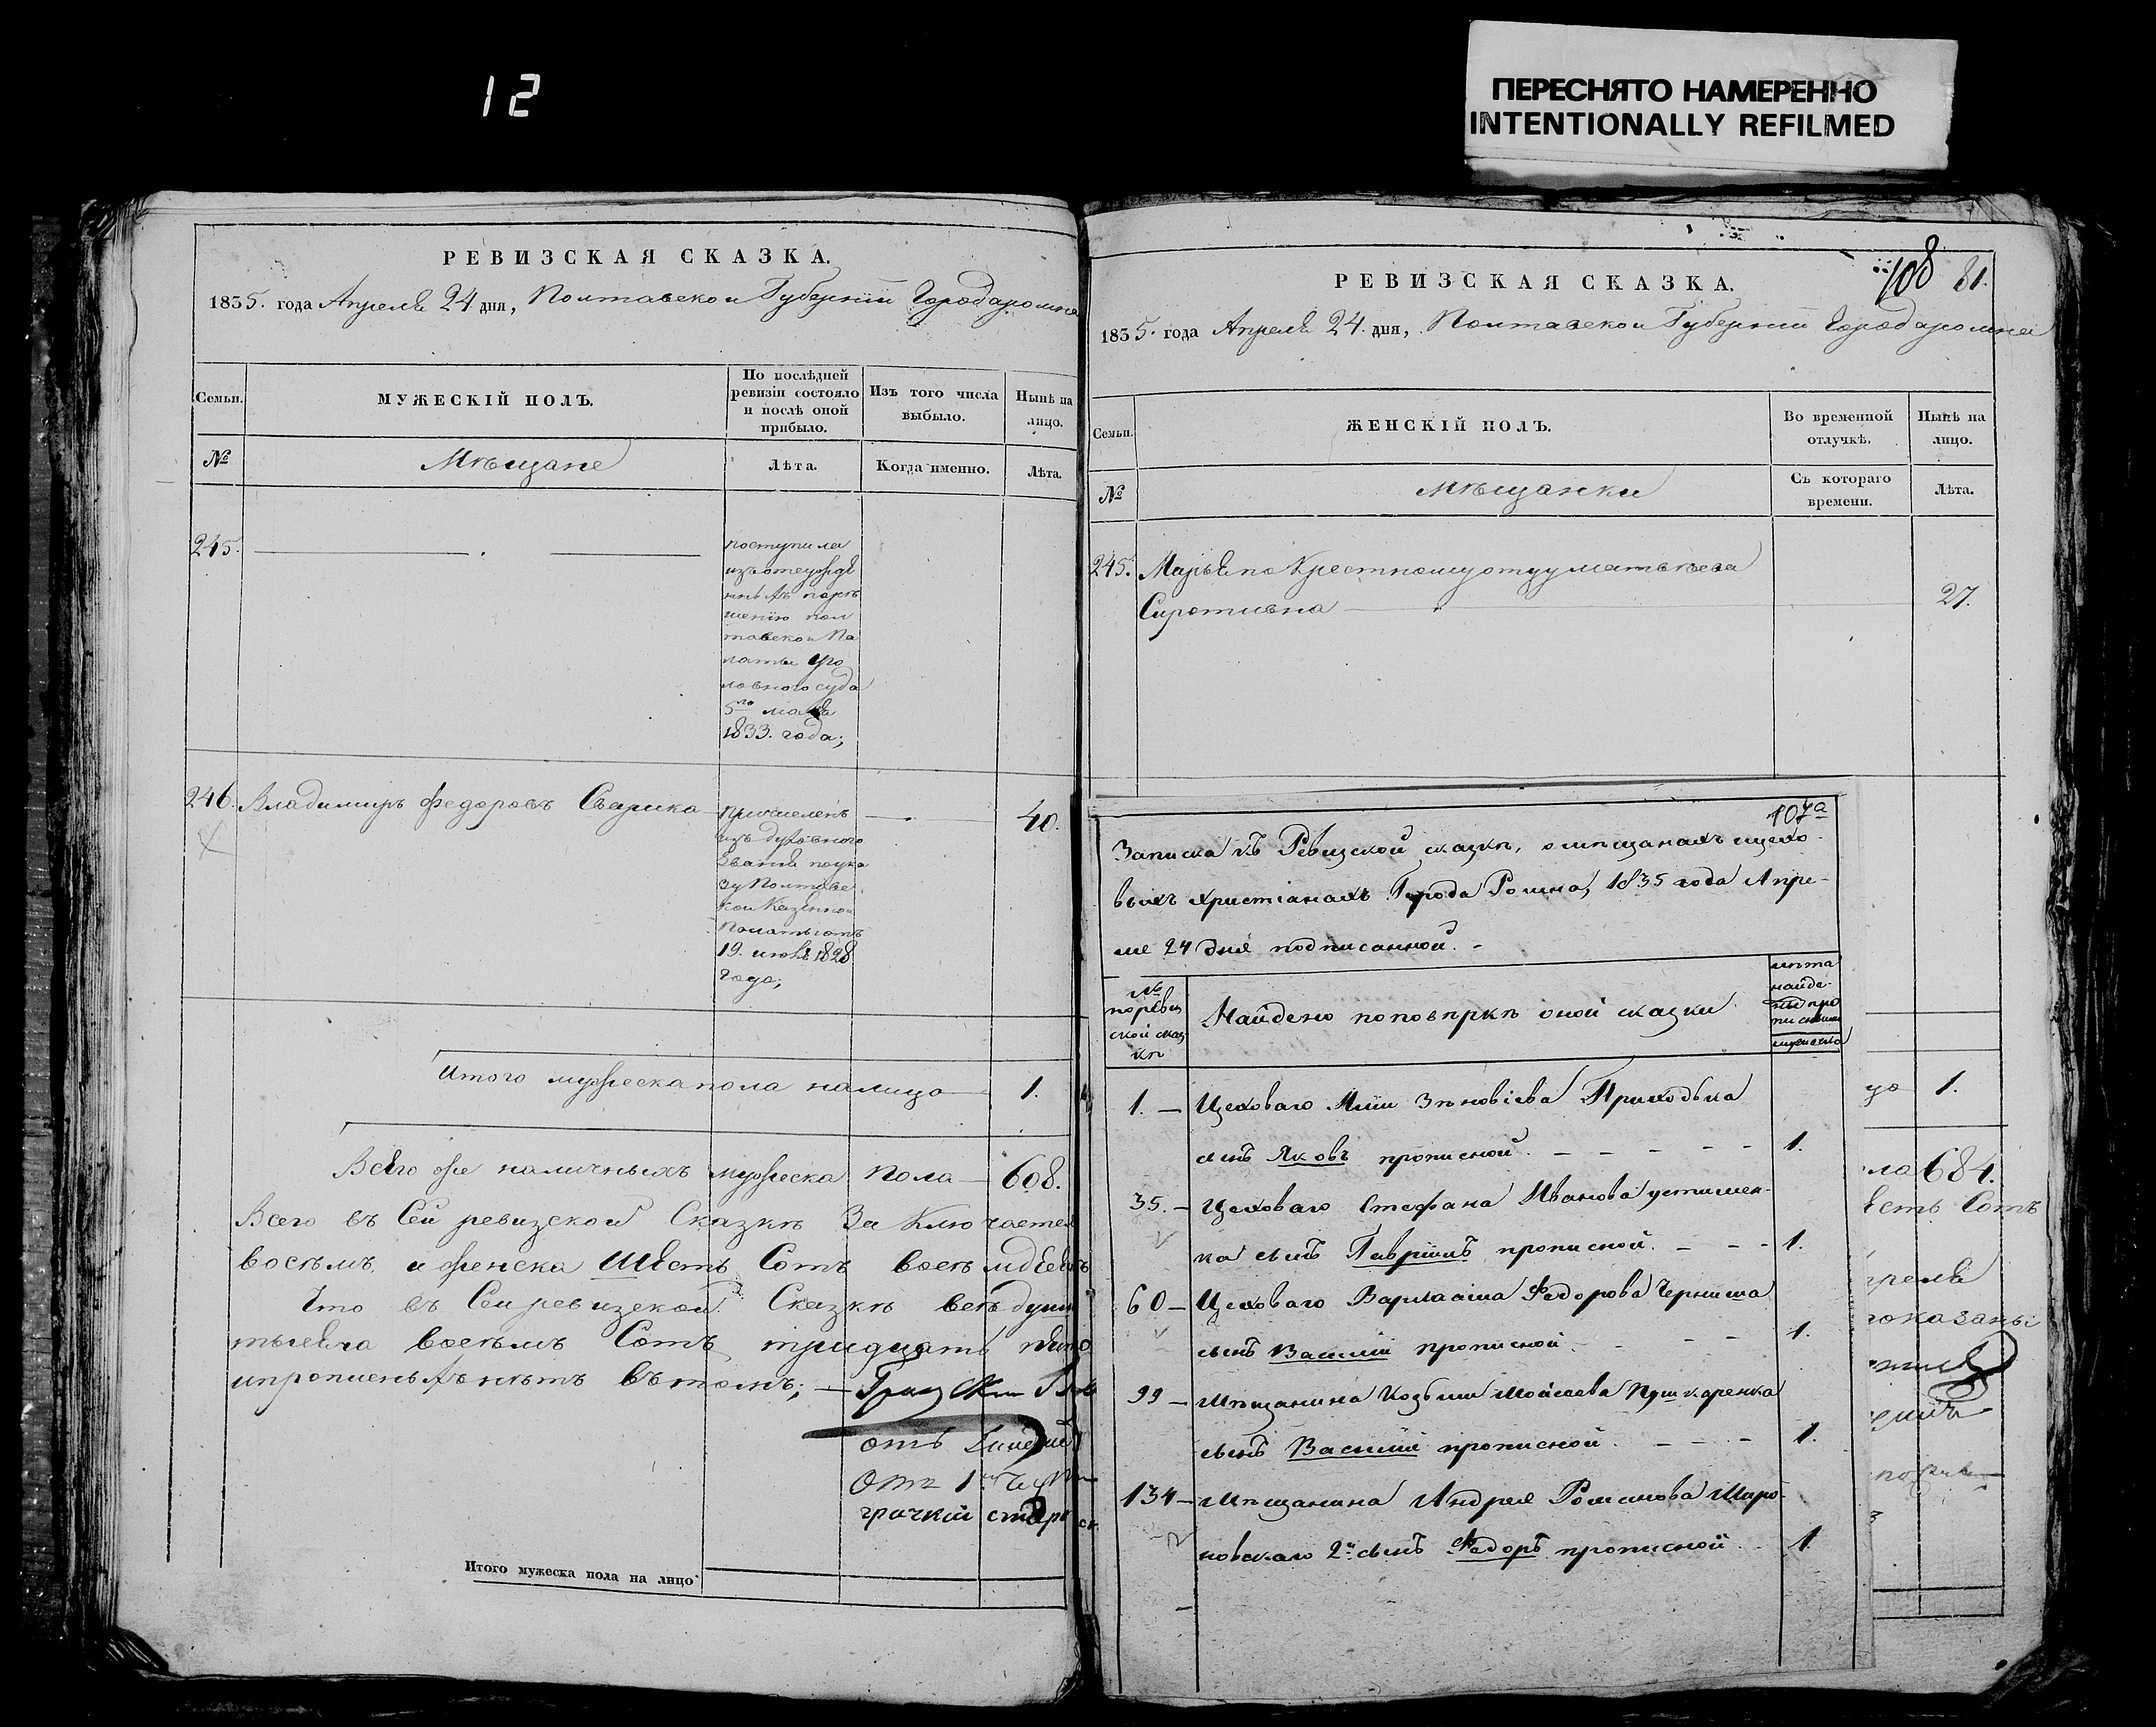 12
ПЕРЕСНЯТО НАМЕРЕННО
INTENTIONALLY REFILMED
РЕВИЗСКАЯ СКАЗКА.
1835. года Апреля 24 дня, Полтавской Губернии Города Ромна
Семьи.
МУЖЕСКІЙ ПОЛЪ.
По послѣдней
ревизіи состояло
и послѣ оной
прибыло.
Изъ того числа
выбыло.
Нынѣ на
лицо.
№
Мѣщане
Лѣта.
Когда именно.
Лѣта.
245.
поступила
шению Пол
тавской Па
латы Уго
ловного суда
5го мая
1833. года;
246. Владимиръ Федоровъ Сварика
причисленъ
изъ духовного
звания по ука
зу Полтавс
кой Казенной
Палаты отъ
19. июня 1828
года;
40.
Итого мужеска пола налицо 1.
Всего же наличныхъ мужеска пола 608.
Всего въ Сей ревизской Сказкѣ Заключается
восѣмъ и женска Шесть Сотъ восѣмдесятъ
Что въ Сей ревизской Сказкѣ всѣ души
восѣмъ Сотъ тридцать пято
и прописныхъ нѣтъ въ томъ;
Итого мужеска пола на лицо
108 81.
РЕВИЗСКАЯ СКАЗКА.
1835. года Апреля 24. дня, Полтавской Губернии Города Ромна
Семьи.
ЖЕНСКІЙ ПОЛЪ.
Во временной
отлучкѣ.
Нынѣ на
лицо.
№
Мѣщанки
Съ котораго
времени.
Лѣта.
245. Марья по Крестному отцу Матвѣева
Сиротивна 27.
107а
Записка къ Ревизской сказкѣ, о мѣщанахъ и цехо-
выхъ христіанахъ Города Ромна, 1835 года Апре-
ля 24 дня подписанной. -
№
по ревиз
ской сказ
кѣ
Найдено по повѣркѣ оной сказки
лѣта
найде-
ны про
писными
мужеска
1. — Цеховаго Зѣновіева Приходька
сынъ Яковъ прописной. - - - - - 1.
35. - Цеховаго Стефана Иванова Устимен-
ка сынъ Гавріилъ прописной. - - - 1.
60 - Цеховаго Варлаама Федорова Черныша
сынъ Василій прописной. - - - 1.
99 - Мѣщанина Козьмы Мойсеева Пушкаренка
сынъ Василій прописной. - - - 1.
134 - Мѣщанина Андрея Романова Миро-
новскаго 2й сынъ Федоръ прописной. 1.
1.
684.
Сотъ